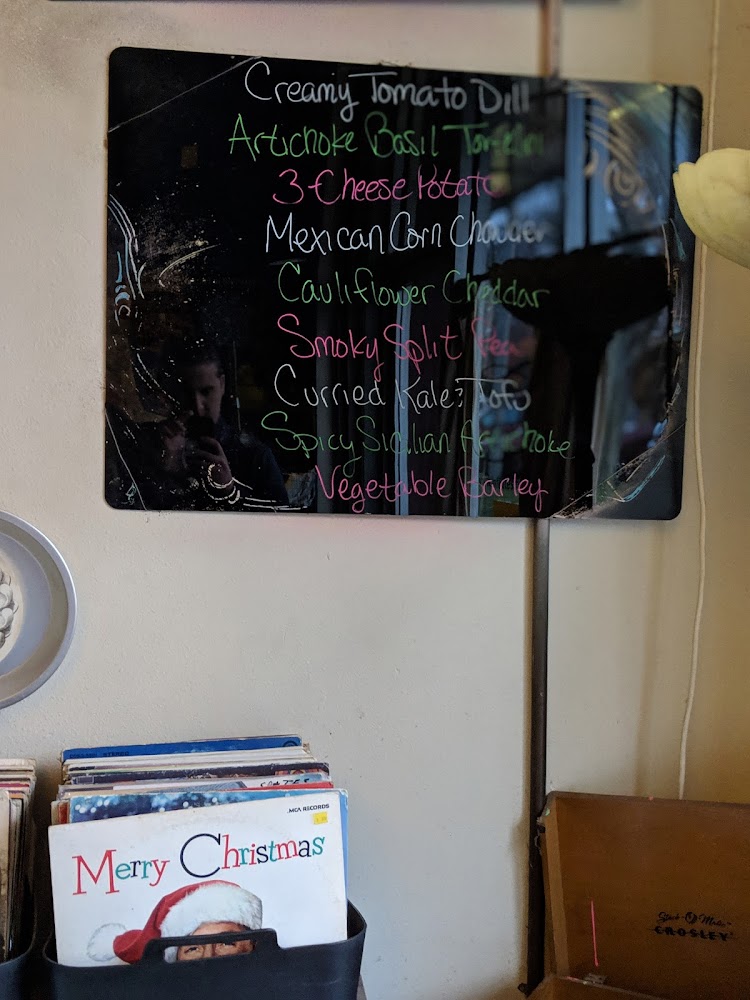 Creamy Tomato Dill
Artichoke Basil Tortellini
3-Cheese Potato
Mexican Corn Chowder
Cauliflower Cheddar
Smoky Split Pea
Curried Kale & Tofu
Spicy Sicilian Artichoke
Vegetable Barley
STEREO
MCA RECORDS
Merry Christmas
CROSLEY